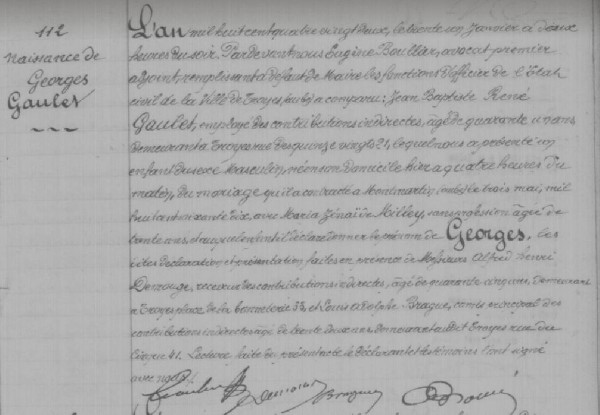 112
Naissance de
Georges
Gaulet
L'an mil huit cent quatre vingt deux, le trente un Janvier à deux
heures du soir. Par devant nous Eugène Boullier, avocat premier
adjoint, remplissant à défaut de Maire les fonctions d'officier de l'Etat
civil de la Ville de Troyes, a comparu: Jean Baptiste René
Gaulet, employé des contributions indirectes, âgé de quarante un ans
demeurant à Troyes rue des quinze vingts 21, lequel nous a présenté un
enfant du sexe Masculin, né en son domicile hier à quatre heures du
matin, du mariage qu'il a contracté à le trois mai, mil
huit cent soixante dix, avec Maria Zénaïde Milley, sans profession âgée de
trente ans, et auquel enfant il déclare donner le prénom de Georges, les
dites déclaration et présentation faites en présence de Messieurs Alfred Henri
receveur des contributions indirectes, âgé de quarante cinq ans, demeurant
à Troyes place de la bonneterie 32, et Louis Adolphe Brague, commis principal des
contributions indirectes âgé de trente deux ans, demeurant au dit Troyes rue du
Cirque 41. Lecture faite du présent acte le déclarant et les témoins l'ont signé
avec nous.
Gaulet Brague